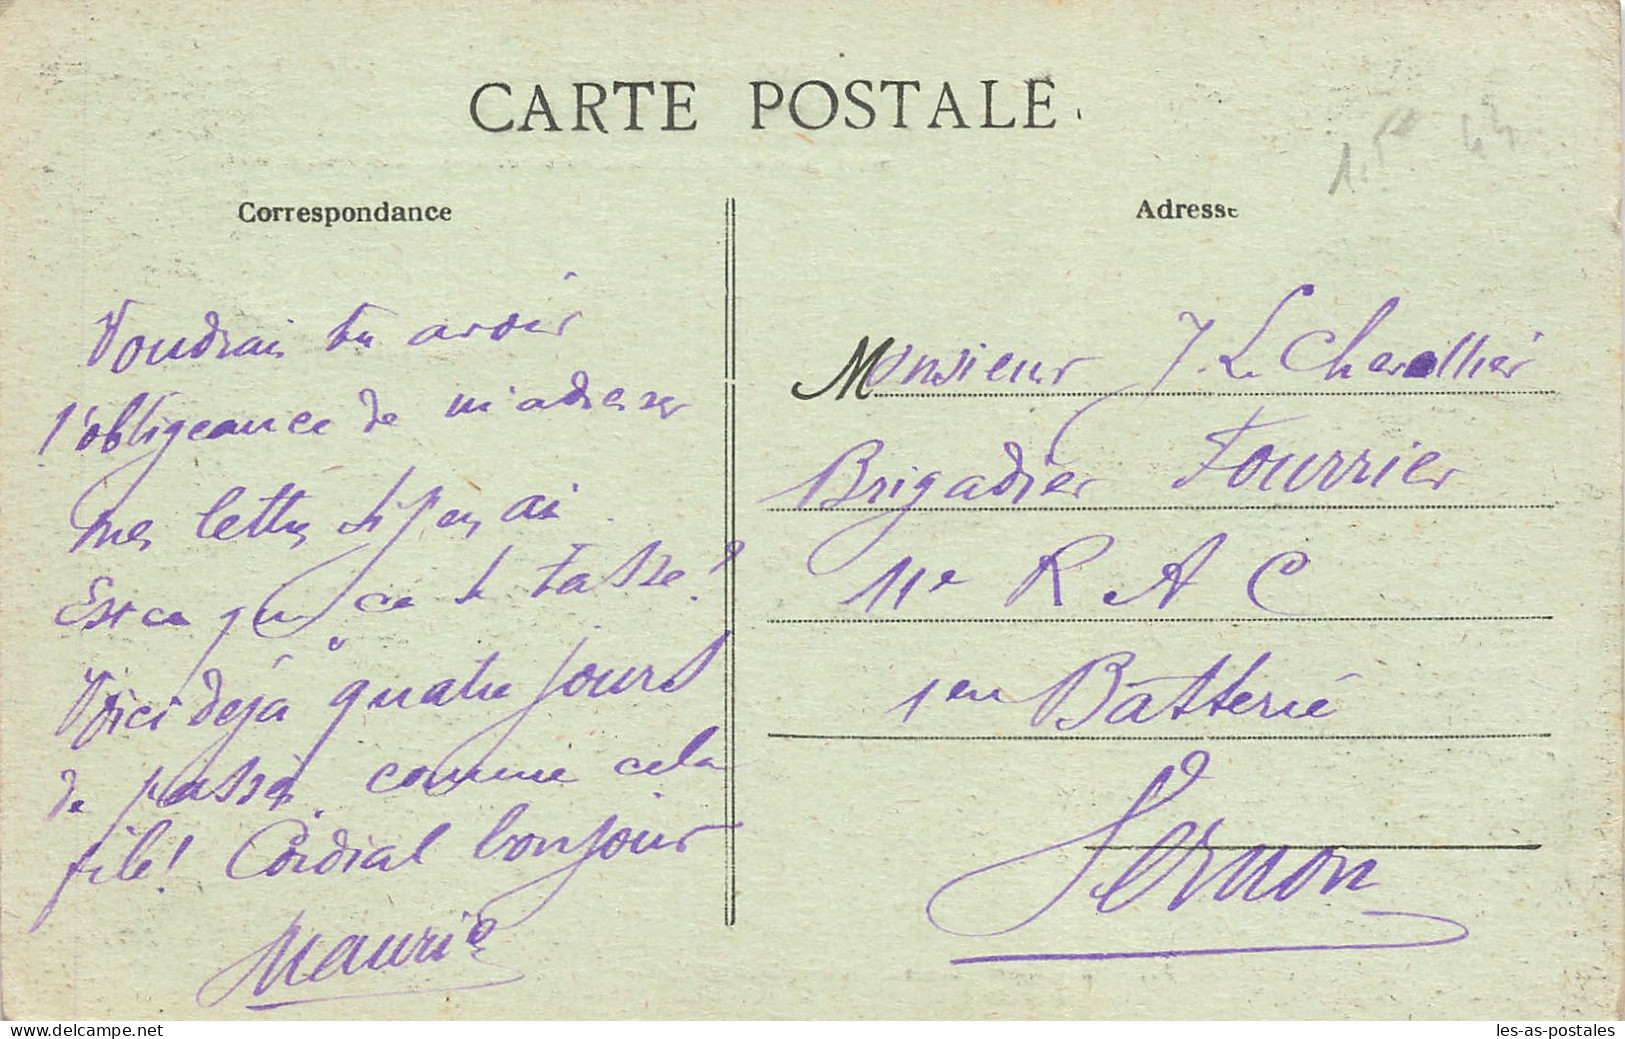 CARTE POSTALE
Correspondance
Adresse
Voudrais tu avoir
l'obligeance de m'adresser
mes lettres si j'en ai
Est ce que ça se tasse?
Voici déjà quatre jours
de passé, comme cela
file! Cordial bonjour
Maurice
Monsieur J. Le Chevallier
Brigadier Fourrier
11e R A C
1ere Batterie
Vernon
www.delcampe.net
les-as-postales